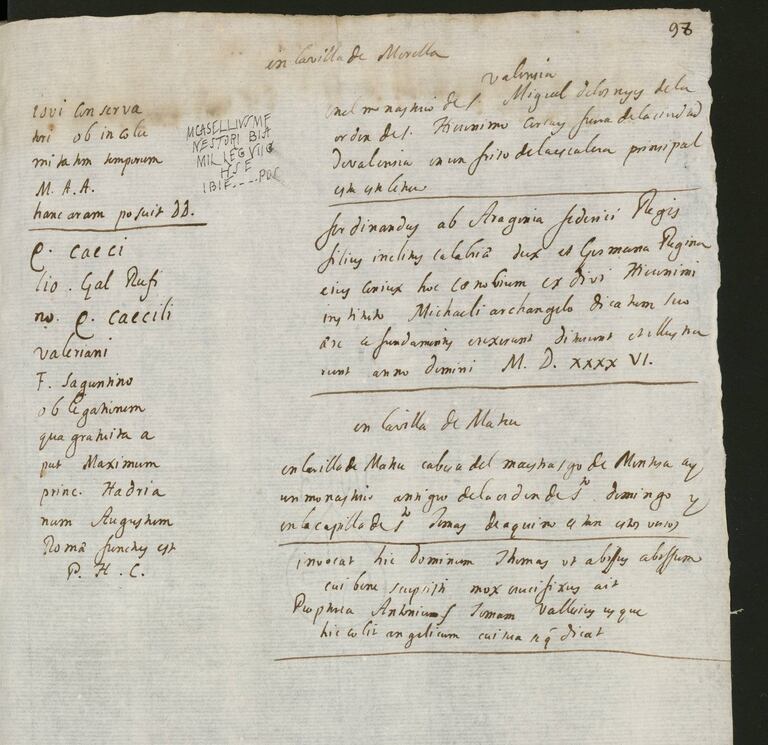 98
en la villa de Morella
iovi conserva
tori ob incolu
mitatem temporum
M. A. A.
hanc aram posuit DD.
Q. CAECI
lio. Gal Rufi
no. Q. CAECILI
valeriani
F. saguntino
ob legationem
qua gratuita a
put Maximum
princ. Hadria
num Augustum
Romã functus est
P. H. C.
MCASELLIVS MF
NESTORI BIA
MIL LEG VII G
HSE
IBIF....POS
valensia
en el monasterio de S. Miguel de los reyes de la
orden de S. Hieronimo cerca y fuera de la ciudad
de valensia en un friso de la escalera prinsipal
esta este letrero
ferdinandus ab Aragonia federici Regis
filius inclitus calabriã dux et Germana Regina
eius coniux hoc cenobium ex divi Hieronimi
instituto Michaeli archangelo dicatum suo
ære a fundamentis erexerunt ditarunt et illustra
runt anno domini M. D. XXXX VI.
en la villa de Mateu
en la villa de Mateu cabesa del maestrasgo de Montesa ay
un monasterio antiguo de la orden de Sto. domingo y
en la capilla de Sto Tomas de aquino estan estos versos
invocat hic dominum Thomas ut abissus abissum
cui bene scripsisti mox crucifixus ait
Antonius Tomam
hic colit angelicum dicat